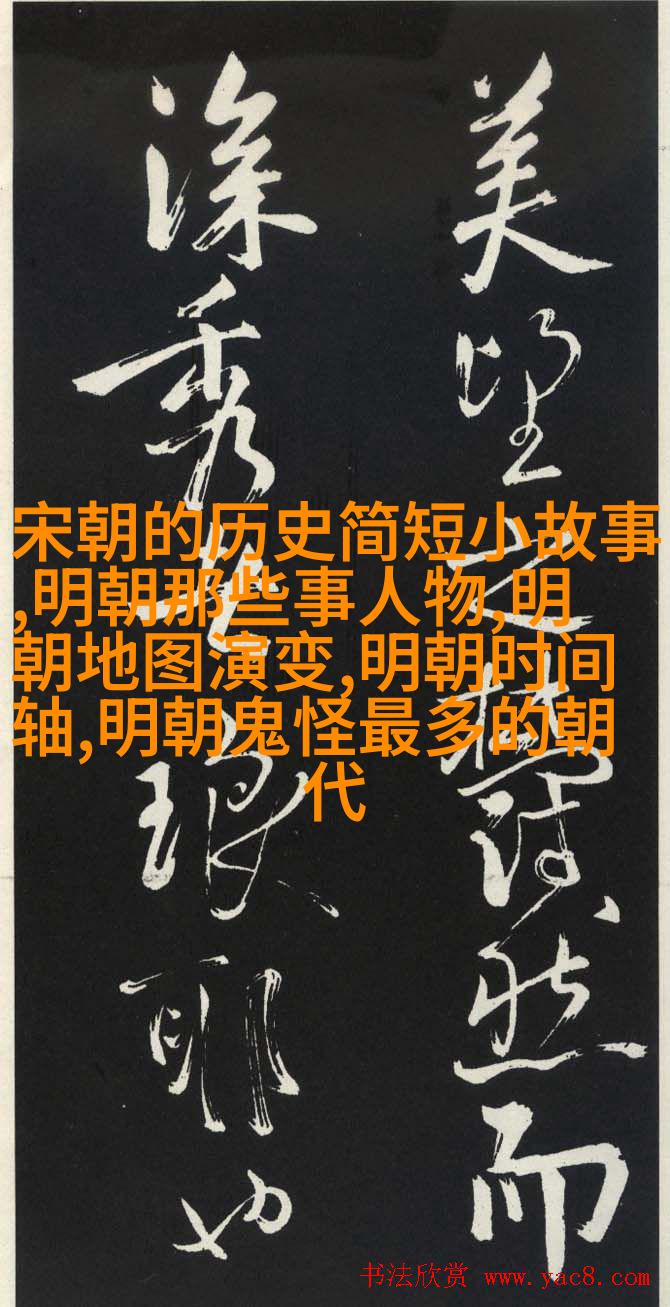 美望之蔚然而
深秀者琅耶也
宋朝的历史简短小故事
,明朝那些事人物,明
朝地图演变,明朝时间
轴,明朝鬼怪最多的朝
代
书法欣赏 www.yac8.com